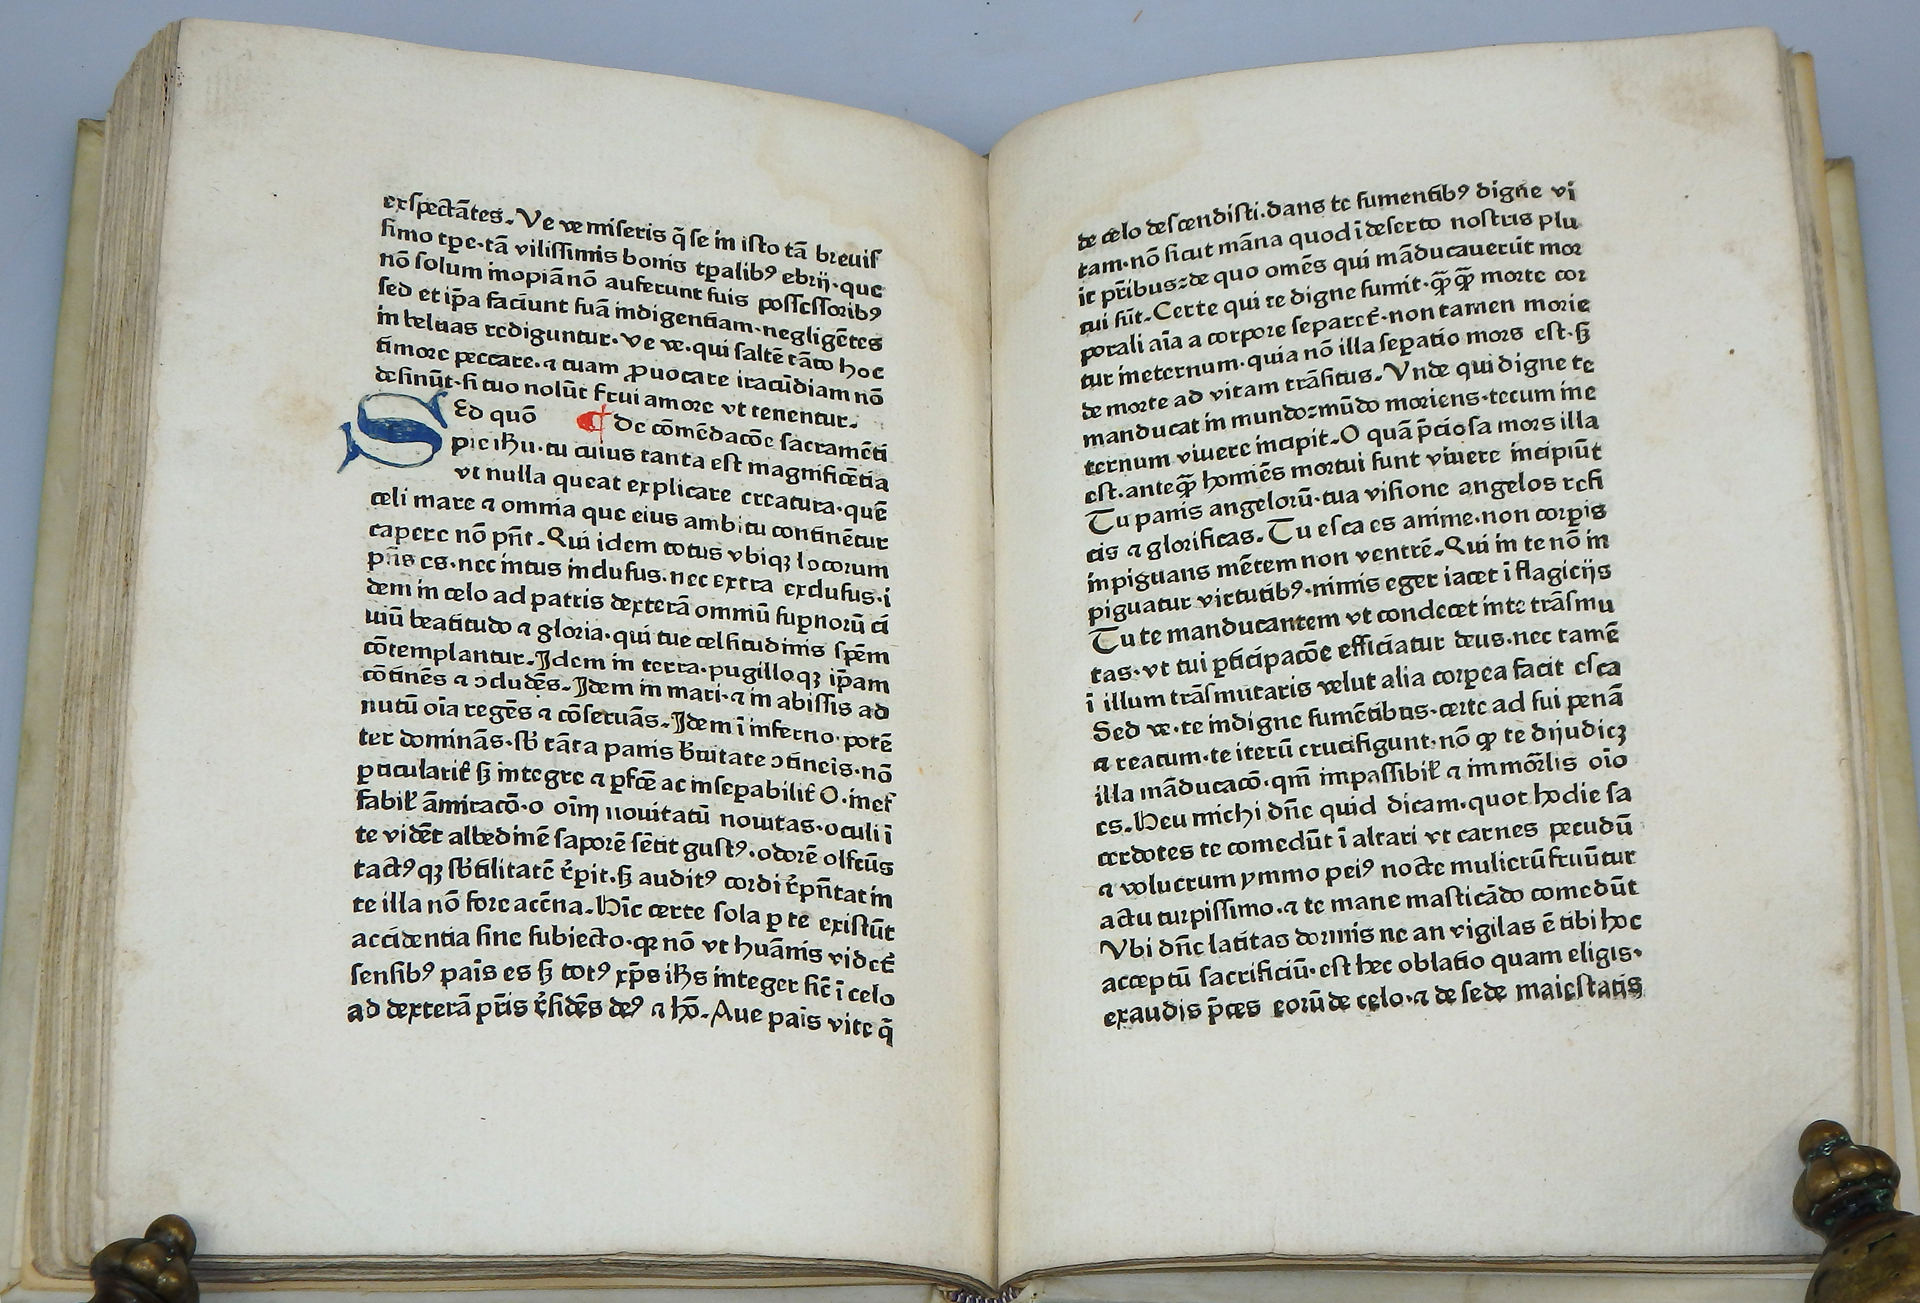 exspectātes. Ve ve miseris q̄ se in isto tā breuis
simo tp̄e. tā vilissimis bonis tp̄alibꝰ ebrij. que
nō solum inopiā nō auferunt suis possessoribꝰ
sed et ip̄a faciunt suā indigentiam. negligētes
in beluas rediguntur. ve ve. qui saltē tāto hoc
timore peccare. ⁊ tuam ꝓuocare iracūdiam nō
desinūt. si tuo nolūt frui amore vt tenentur.
SEd quō ¶ De cōmēdacōe sacramēti
pie ihu. tu cuius tanta est magnificētia
vt nulla queat explicare creatura. quē
celi mare ⁊ omnia que eius ambitu continētur
capere nō pn̄t. Qui idem totus vbiqꝫ locorum
pn̄s es. nec intus inclusus. nec extra exclusus. i
dem in celo ad patris dexterā omniū suꝑnorū ci
uiū beatitudo ⁊ gloria. qui tue celsitudinis spēm
cōtemplantur. Idem in terra. pugilloqꝫ ip̄am
cōtinēs ⁊ ↄcludēs. Idem in mari. ⁊ in abissis ad
nutū oīa regēs ⁊ cōseruās. Idem ī inferno. potē
ter dominās. sb̄ tāta panis b̄uitate ↄtineis. nō
ꝑticularit̄ sꝫ integre ⁊ ꝑfc̄e ac inseꝑabilit̄ O. inef
fabil̄ āmiracō. o oīm nouitatū nouitas. oculi ī
te vidēt albedinē saporē sētit gustꝰ. odorē olfctūs
tactꝰqꝫ sb̄tilitatē r̄pit. sꝫ auditꝰ cordi r̄pn̄tat in
te illa nō fore accn̄a. hīc certe sola ꝑ te existūt
accidentia sine subiecto. qꝛ nō vt huānis videt̄
sensibꝰ pāis es sꝫ totꝰ xp̄s ihs integer sic̄ ī celo
ad dexterā pr̄is r̄sidēs deꝰ ⁊ hō. Aue pāis vite q̄
de celo descendisti. dans te sumentibꝰ digne vi
tam. nō sicut māna quod ī deserto nostris plu
it pr̄ibus: de quo omēs qui māducauerūt mor
tui sūt. Certe qui te digne sumit. qꝙ̄ morte cor
porali aīa a corpore separet̄. non tamen morie
tur ineternum. quia nō illa seꝑatio mors est. sꝫ
de morte ad vitam trāsitus. Vnde qui digne te
manducat in mundo: mūdo moriens. tecum ine
ternum viuere incipit. O quā p̄ciosa mors illa
est. anteqꝙ̄ homiēs mortui sunt viuere incipiūt
Tu panis angelorū. tua visione angelos refi
cis ⁊ glorificas. Tu esca es anime. non corꝑis
inpiguans mētem non ventrē. Qui in te nō in
piguatur virtutibꝰ. nimis eger iacet ī flagicijs
Tu te manducantem vt condecet in te trāsmu
tas. vt tui ꝑticipacōe efficiatur deus. nec tamē
ī illum trāsmutaris velut alia corꝑea facit esca
Sed ve. te indigne sumētibus. certe ad sui penā
⁊ reatum. te iterū crucifigunt. nō ꝙ te dijudicꝫ
illa māducacō. qm̄ impassibil̄ ⁊ immōrlis oīo
es. Heu michi dn̄e quid dicam. quot hodie sa
cerdotes te comedūt ī altari vt carnes pecudū
⁊ volucrum ymmo peiꝰ nocte mulierū fruūtur
actu turpissimo. ⁊ te mane masticādo comedūt
Vbi dn̄e latitas dormis ne an vigilas ē tibi hoc
acceptū sacrificiū. est hec oblatio quam eligis.
exaudis p̄ces eorū de celo. ⁊ de sede maiestatis